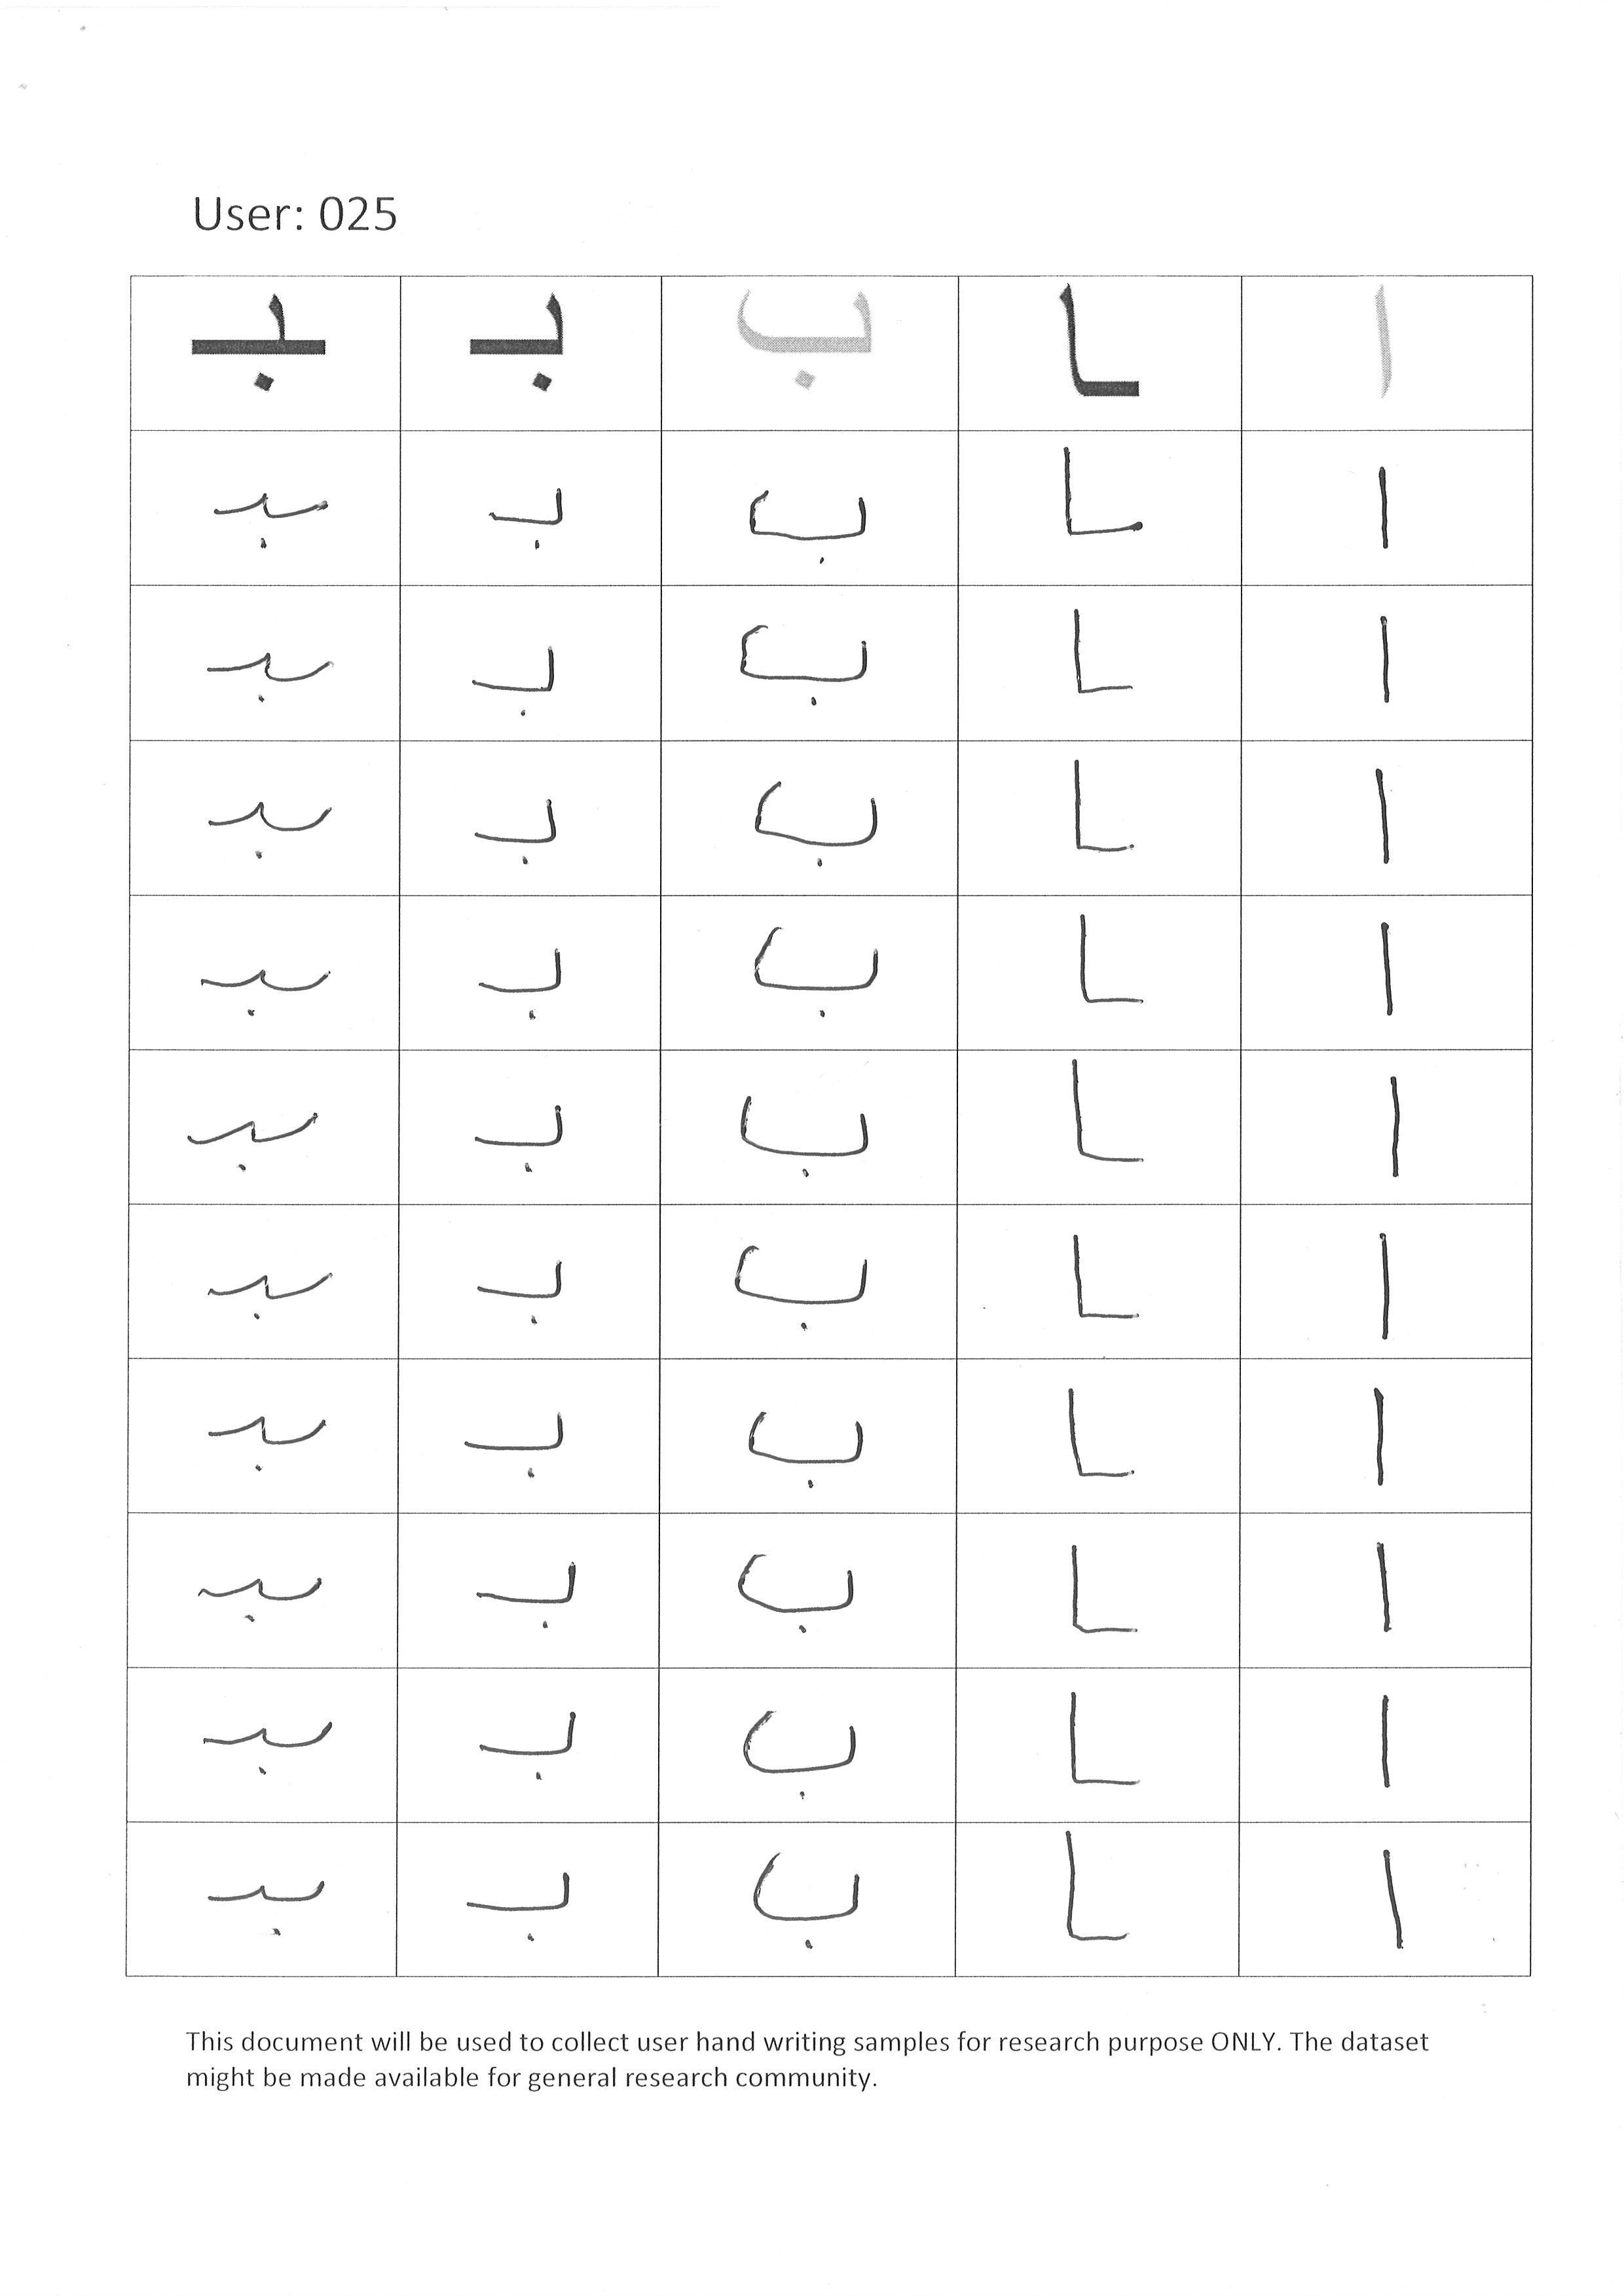 User: 025
ا ـا ب بـ ـبـ
ا ـا ب بـ ـبـ
ا ـا ب بـ ـبـ
ا ـا ب بـ ـبـ
ا ـا ب بـ ـبـ
ا ـا ب بـ ـبـ
ا ـا ب بـ ـبـ
ا ـا ب بـ ـبـ
ا ـا ب بـ ـبـ
ا ـا ب بـ ـبـ
ا ـا ب بـ ـبـ
This document will be used to collect user hand writing samples for research purpose ONLY. The dataset
might be made available for general research community.